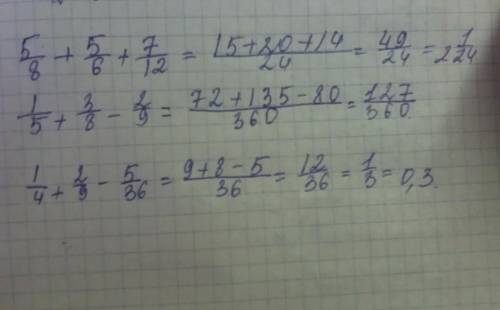 5/8 + 5/6 + 7/12 = (15+20+14)/24 = 49/24 = 2 1/24
1/5 + 3/8 - 2/9 = (72+135-80)/360 = 127/360.
1/4 + 2/9 - 5/36 = (9+8-5)/36 = 12/36 = 1/3 = 0,3.